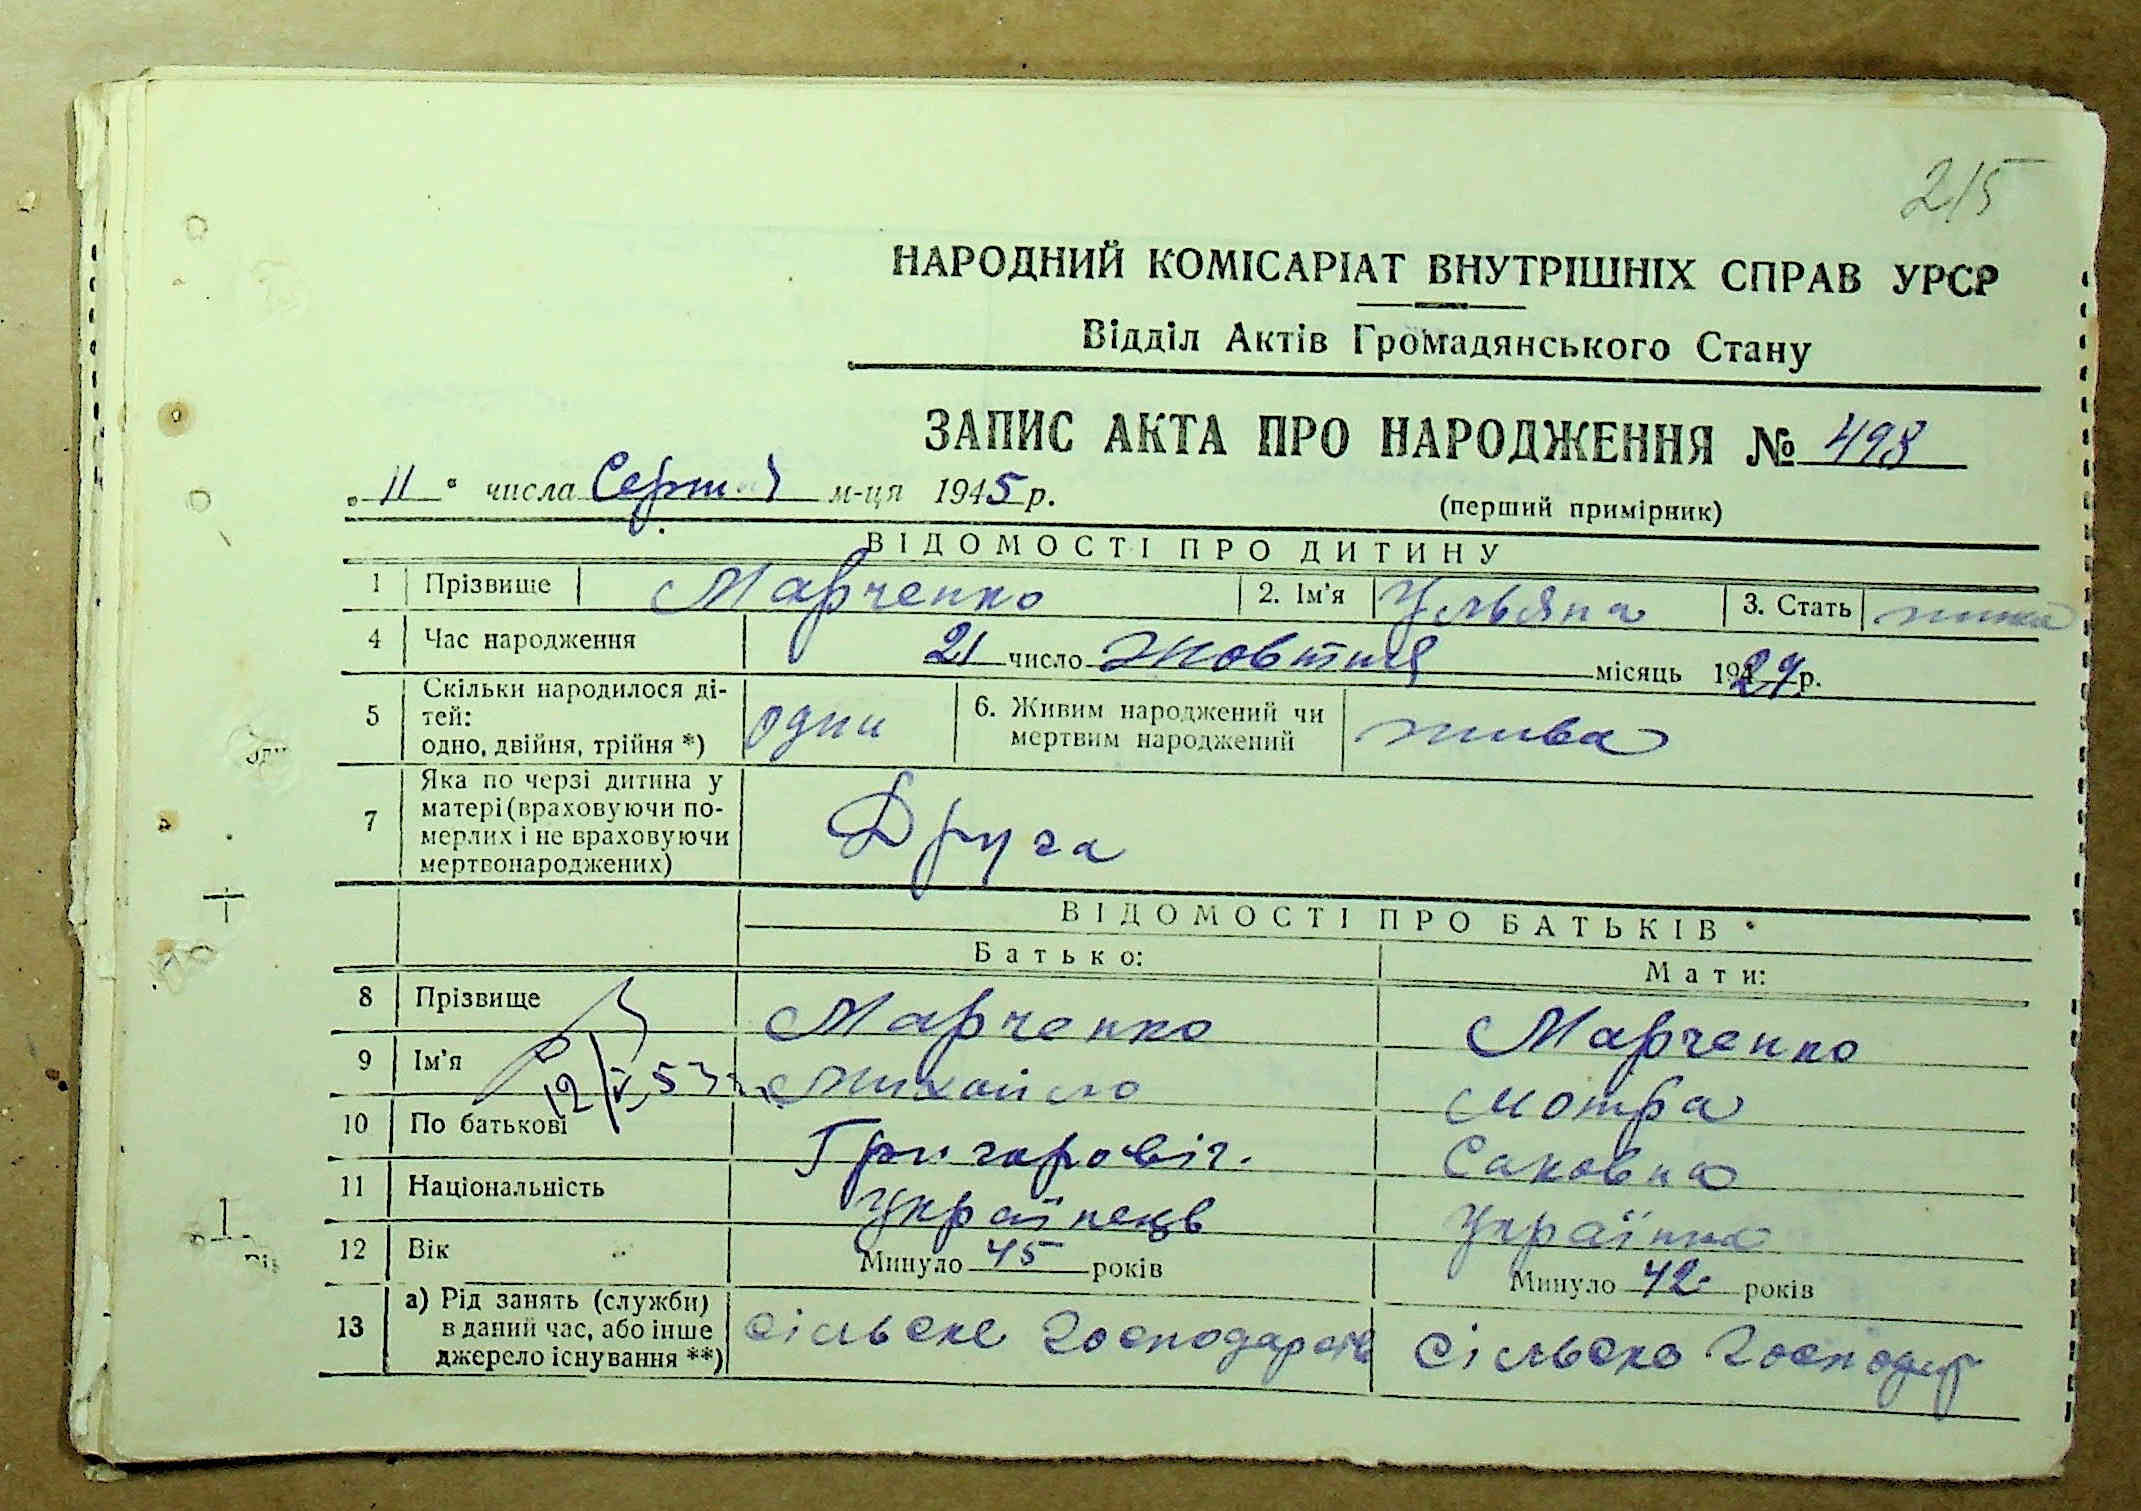 215
НАРОДНИЙ КОМІСАРІАТ ВНУТРІШНІХ СПРАВ УРСР
Відділ Актів Громадянського Стану
ЗАПИС АКТА ПРО НАРОДЖЕННЯ № 498
„ 11 “ числа Серпня м-ця 1945 р.
(перший примірник)
ВІДОМОСТІ ПРО ДИТИНУ
1 Прізвище Марченко 2. Ім'я Ульяна 3. Стать
4 Час народження 21 число Жовтня місяць 1927 р.
5 Скільки народилося ді-
тей:
одно, двійня, трійня *) одни 6. Живим народжений чи
мертвим народжений жива
7 Яка по черзі дитина у
матері (враховуючи по-
мерлих і не враховуючи
мертвонароджених) Друга
ВІДОМОСТІ ПРО БАТЬКІВ
Батько: Мати:
8 Прізвище Марченко Марченко
9 Ім'я Михайло Мотря
12/V 53
10 По батькові Григорович. Саковна
11 Національність Українець Українка
12 Вік Минуло 45 років Минуло 42 років
13 а) Рід занять (служби)
в даний час, або інше
джерело існування **) сільске господарств сільско господар